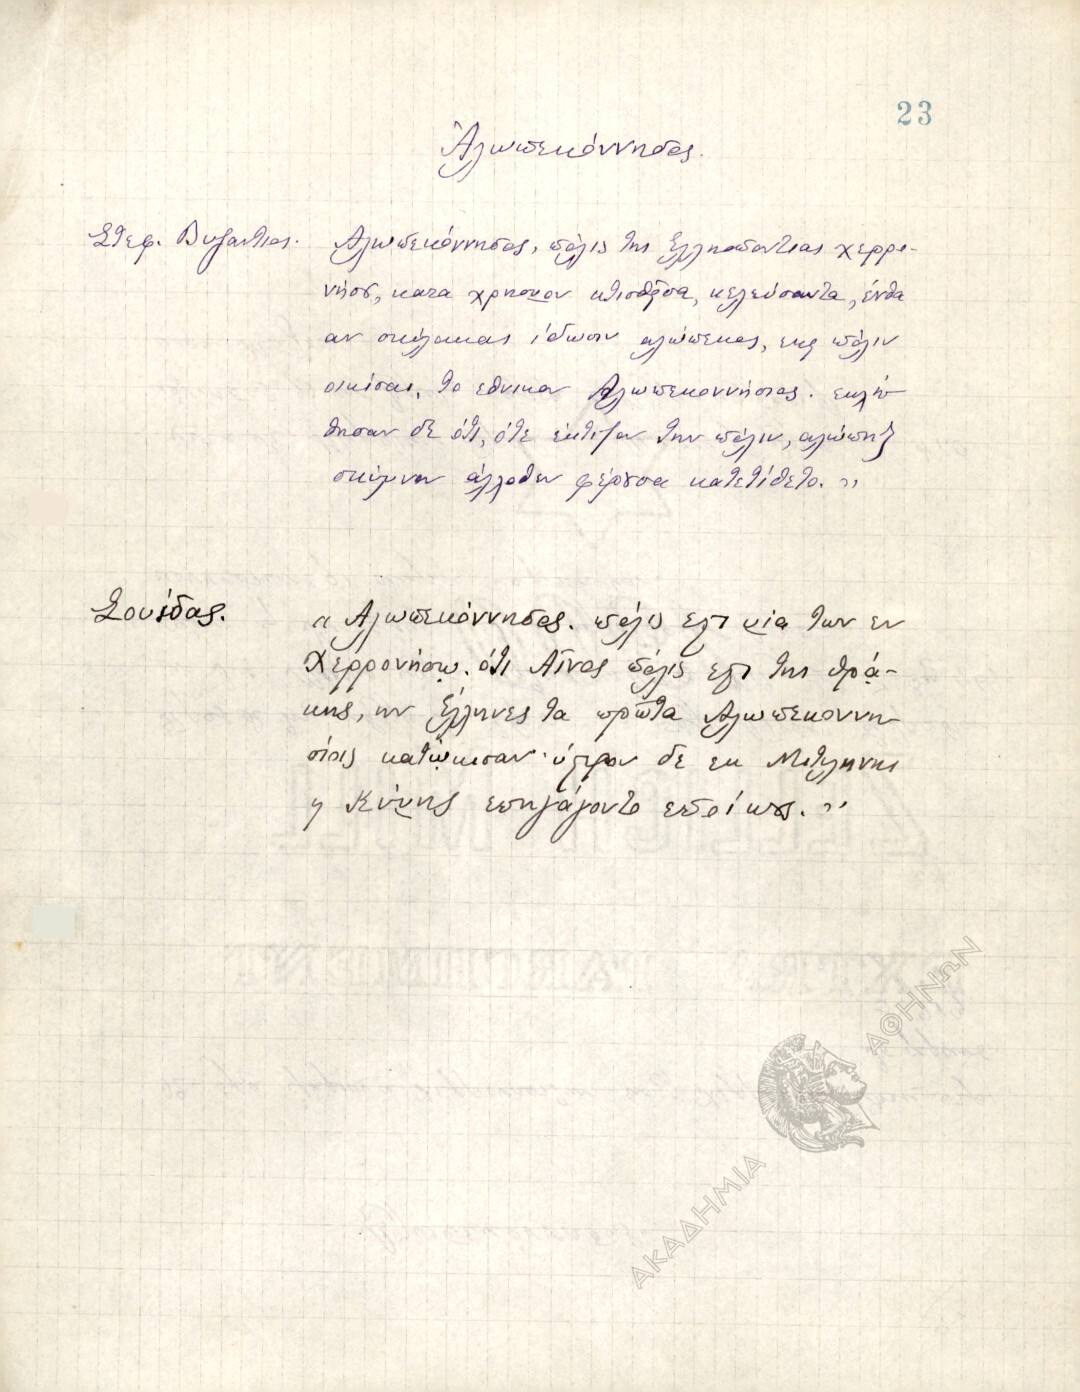 23
Ἀλωπεκόννησος.
Στεφ. Βυζαντιος. Αλωπεκόννησος, πόλις της Ελλησποντιας χερρο-
νήσου, κατα χρησμον κτισθεῖσα, κελεύσαντα, ένθα
αν σκύλακας ίδωσιν αλώπεκος, εκεῖ πόλιν
οικίσαι, το εθνικον Αλωπεκοννήσιος. εκλή
θησαν δε ότι, ότε έκτιζον την πόλιν, αλώπηξ
σκύμνον άλλοθεν φέρουσα κατετίθετο. »
Σουίδας. « Αλωπεκόννησος. πόλις εστι μία των εν
Χερρονήσῳ. ότι Αῖνος πόλις εστι της Θρᾴ-
κης, ην Έλληνες τα πρῶτα Αλωπεκοννη
σίοις κατῴκισαν· ύστερον δε εκ Μιτυλήνης
η Κύμης επηγάγοντο εποίκους. »
ΑΚΑΔΗΜΙΑ ΑΘΗΝΩΝ